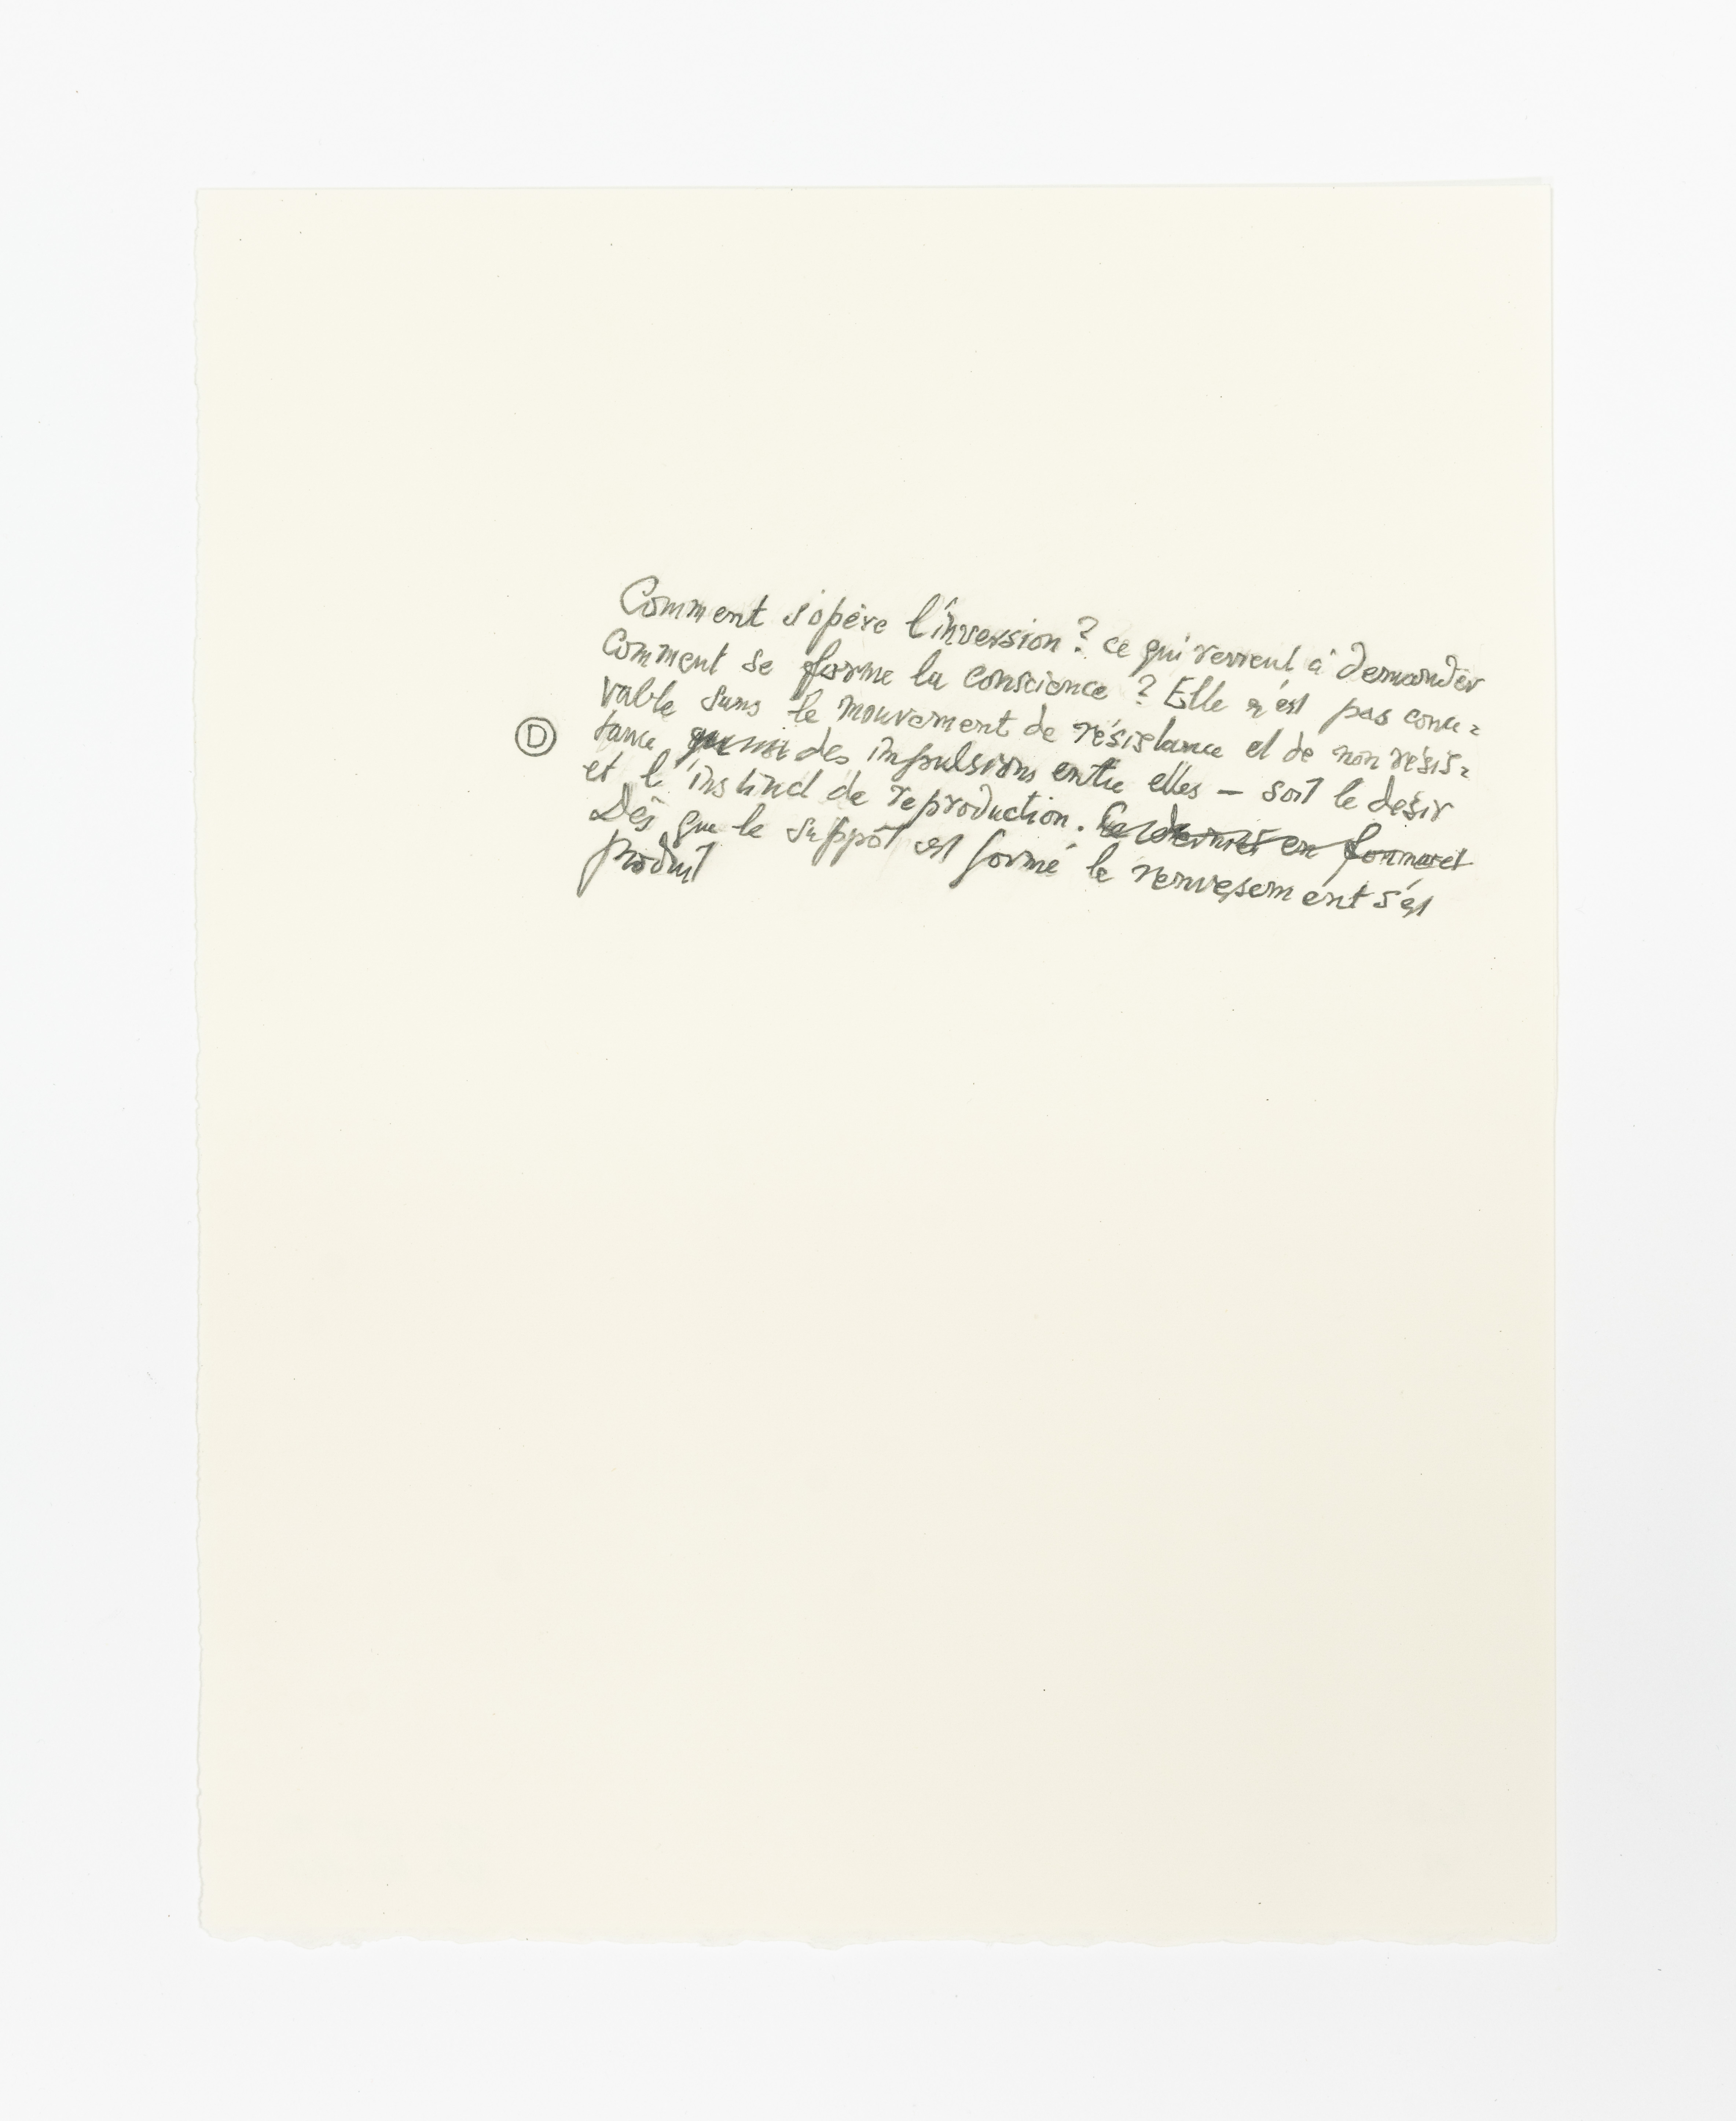 Comment s'opère l'inversion ? ce qui revient à demander
comment se forme la conscience ? Elle n'est pas conce=
vable sans le mouvement de résistance et de non résis=
D tance des impulsions entre elles — soit le désir
et l'instinct de reproduction. Ce dernier en formant
Dès que le suppôt est formé le renvesement s'est
produit